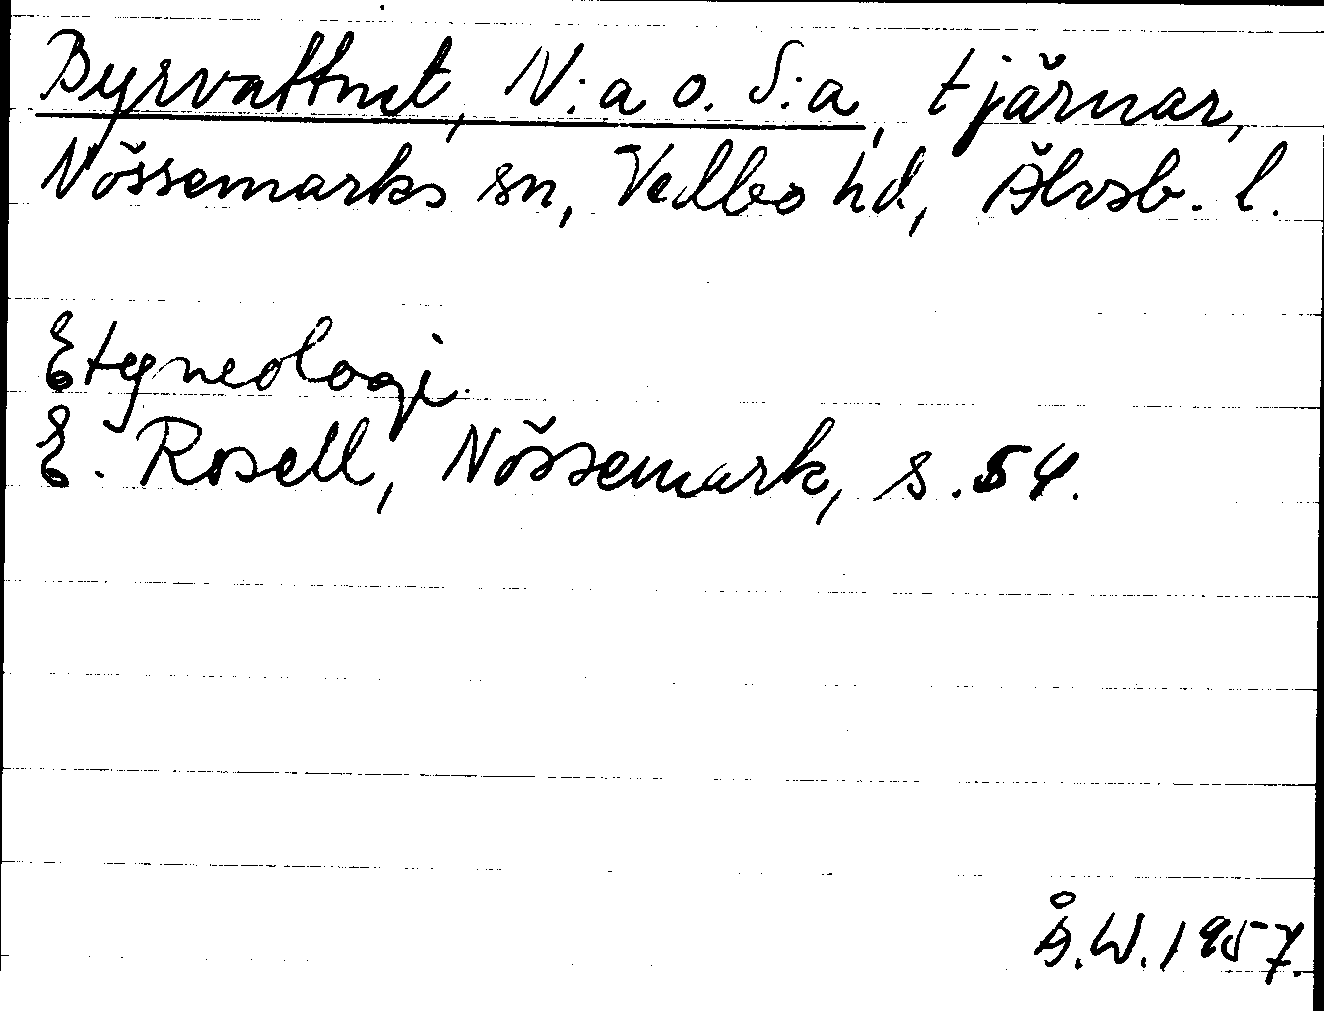 Byrvattnet, N:a o. S:a, tjärnar,
Nössemarks sn, Vedbo hd, Älvsb. l.
Etymologi.
E. Rosell, Nössemark, s. 54.
Å.W. 1957.